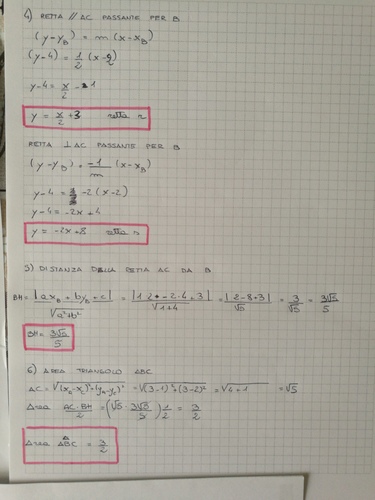 4) RETTA // AC PASSANTE PER B
(y-y_B) = m (x-x_B)
(y-4) = 1/2 (x-2)
y-4 = x/2 - 1
y = x/2 + 3 retta r
RETTA ⊥ AC PASSANTE PER B
(y-y_B) = -1/m (x-x_B)
y-4 = -2(x-2)
y-4 = -2x+4
y = -2x+8 retta s
5) DISTANZA DELLA RETTA AC DA B
BH = |ax_B + by_B + c| / √a²+b² = |1·2 + -2·4 + 3| / √1+4 = |2-8+3| / √5 = 3/√5 = 3√5/5
BH = 3√5/5
6) AREA TRIANGOLO ABC
AC = √(x_A-x_C)²+(y_A-y_C)² = √(3-1)²+(3-2)² = √4+1 = √5
Area AC·BH/2 = (√5 · 3√5/5) 1/2 = 3/2
Area ABC = 3/2